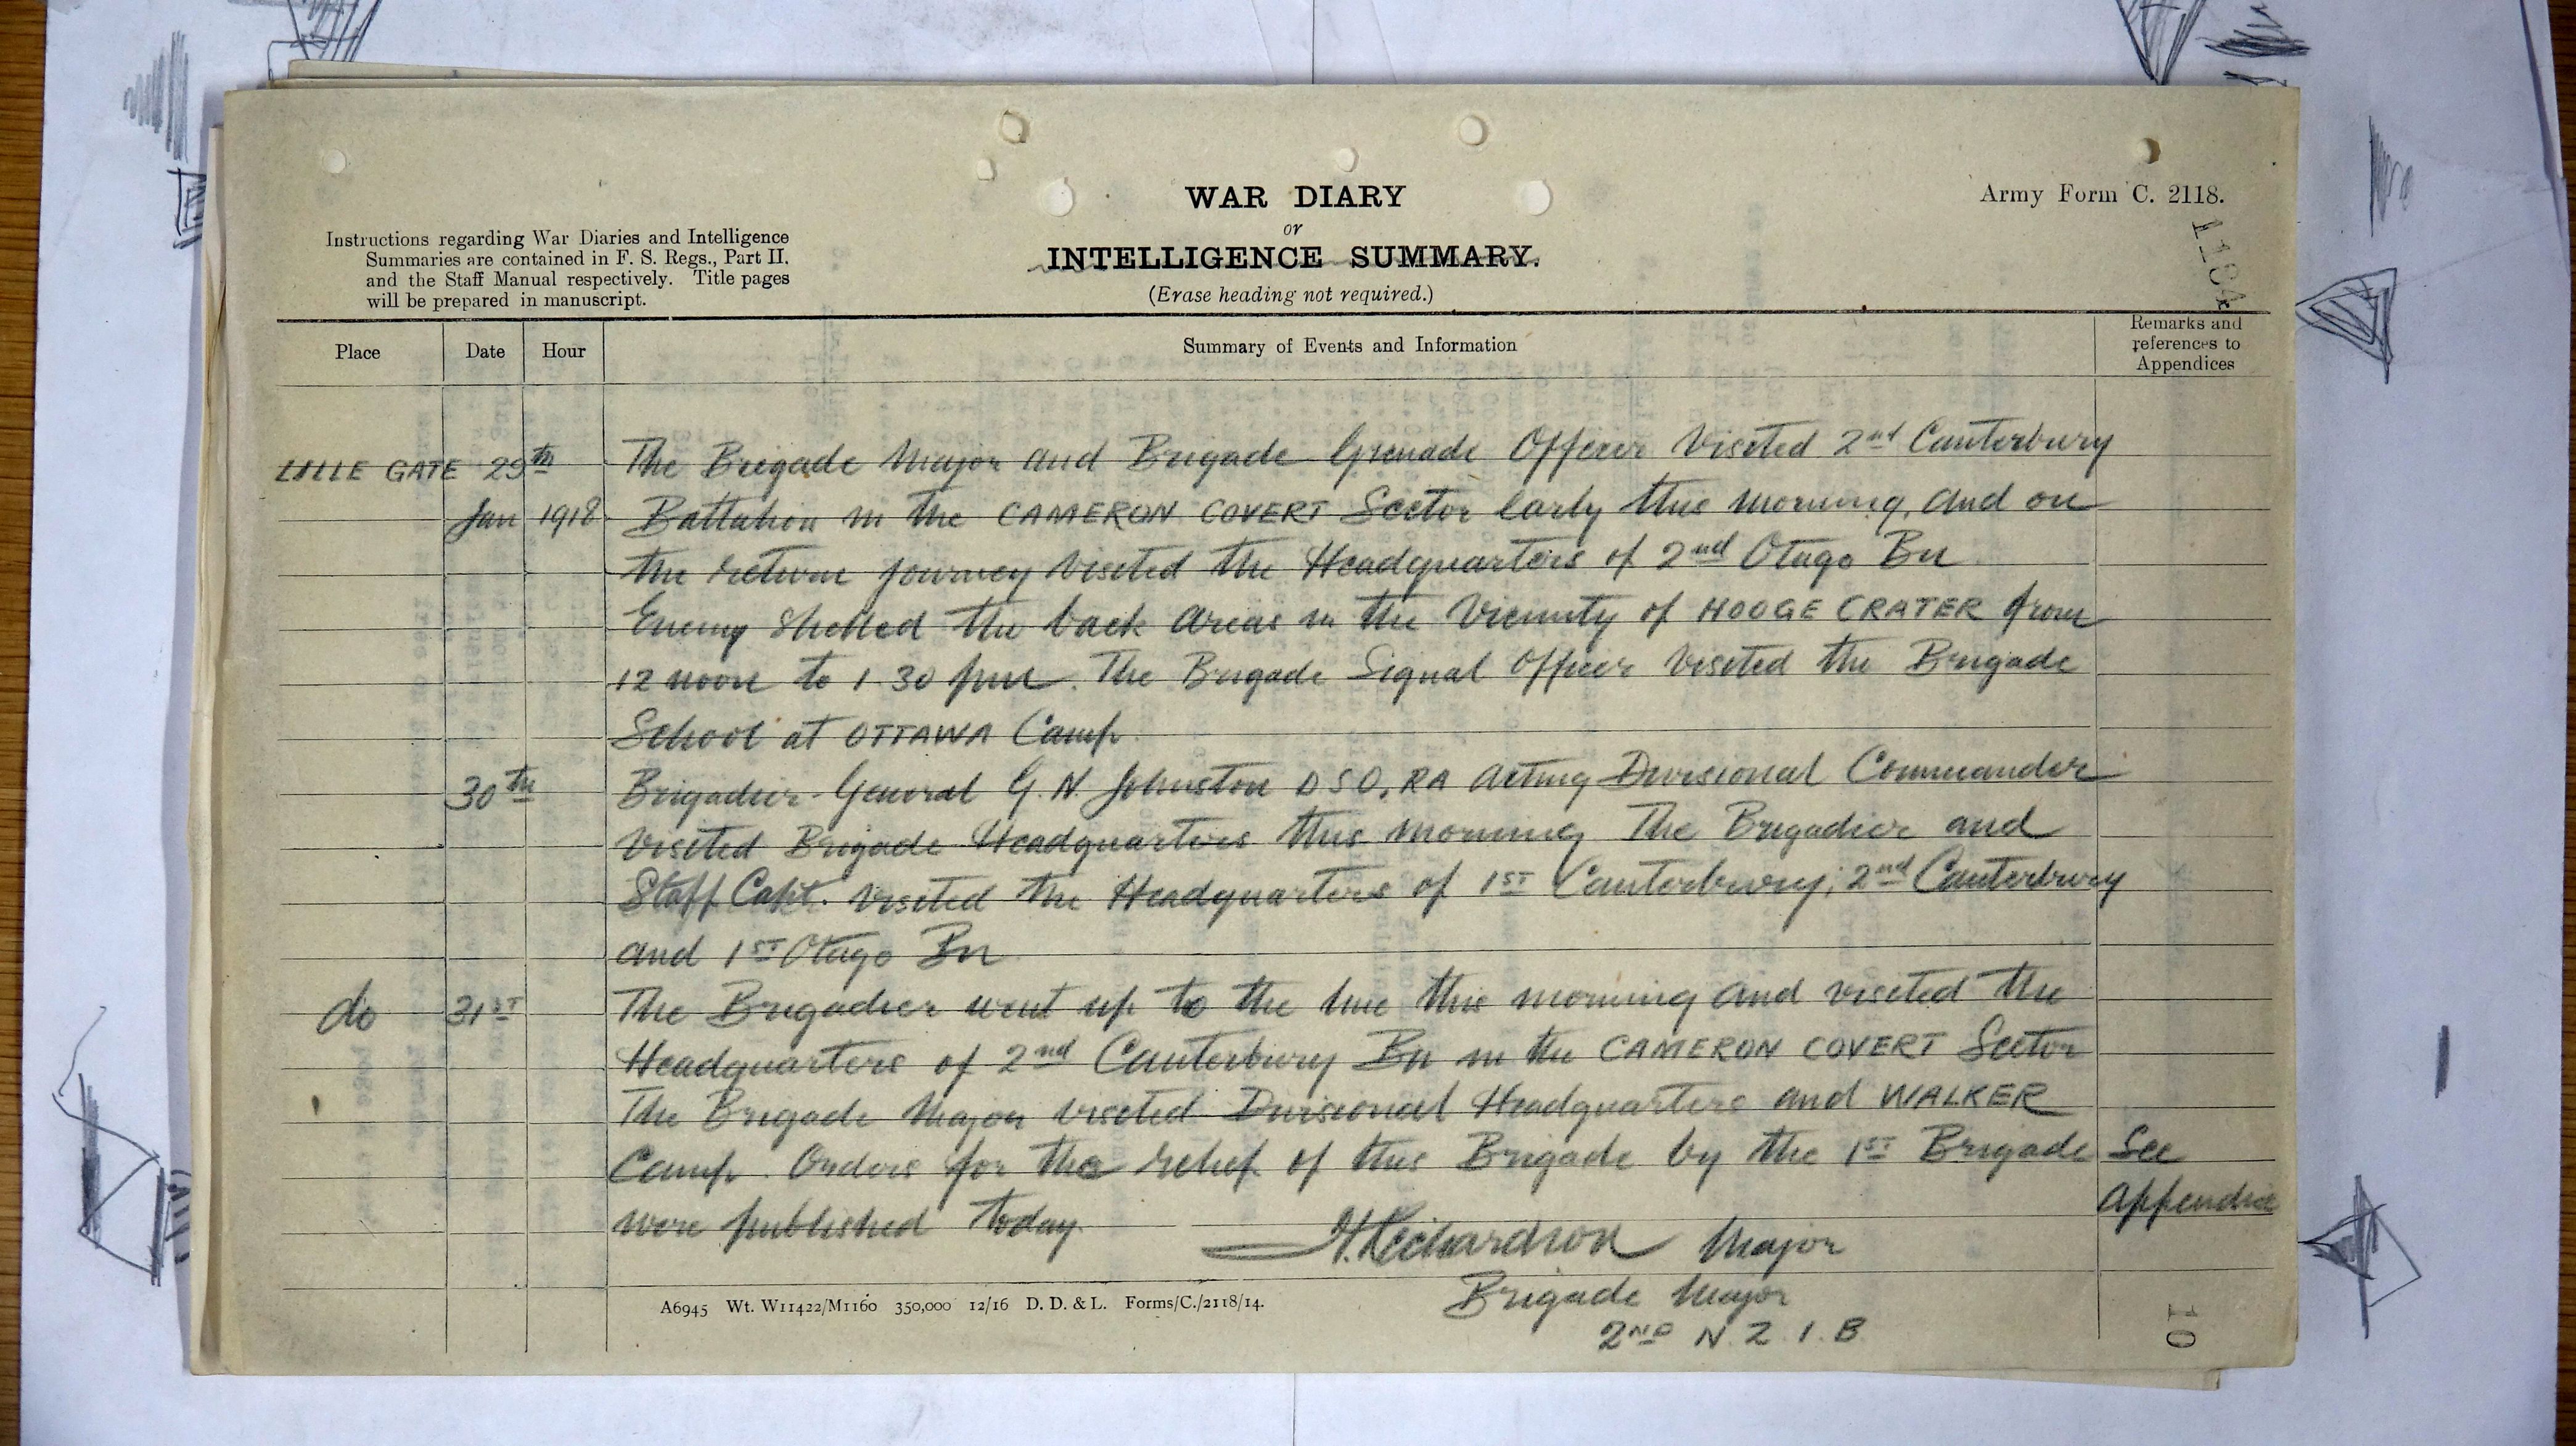 WAR DIARY
or
INTELLIGENCE SUMMARY.
(Erase heading not required.)
Army Form C. 2118.
Instructions regarding War Diaries and Intelligence
Summaries are contained in F. S. Regs., Part II.
and the Staff Manual respectively. Title pages
will be prepared in manuscript.
Place Date Hour Summary of Events and Information Remarks and references to Appendices
LILLE GATE 29th The Brigade Major and Brigade Grenade Officer visited 2nd Canterbury
Jan 1918 Battalion in the CAMERON COVERT Sector early this morning, and on
the return journey visited the Headquarters of 2nd Otago Bn
Enemy shelled the back areas in the vicinity of HOOGE CRATER from
12 noon to 1.30 pm. The Brigade Signal Officer visited the Brigade
School at OTTAWA Camp
30th Brigadier-General G.N. Johnston DSO, RA acting Divisional Commander
visited Brigade Headquarters this morning The Brigadier and
Staff Capt. visited the Headquarters of 1ST Canterbury; 2nd Canterbury
and 1ST Otago Bn
do 31ST The Brigadier went up to the line this morning and visited the
Headquarters of 2nd Canterbury Bn in the CAMERON COVERT Sector
The Brigade Major visited Divisional Headquarters and WALKER
Camp. Orders for the relief of this Brigade by the 1ST Brigade See
were published today Appendix
H. Richardson Major
Brigade Major
2ND N.Z.I.B
A6945 Wt. W11422/M1160 350,000 12/16 D. D. & L. Forms/C./2118/14.
10